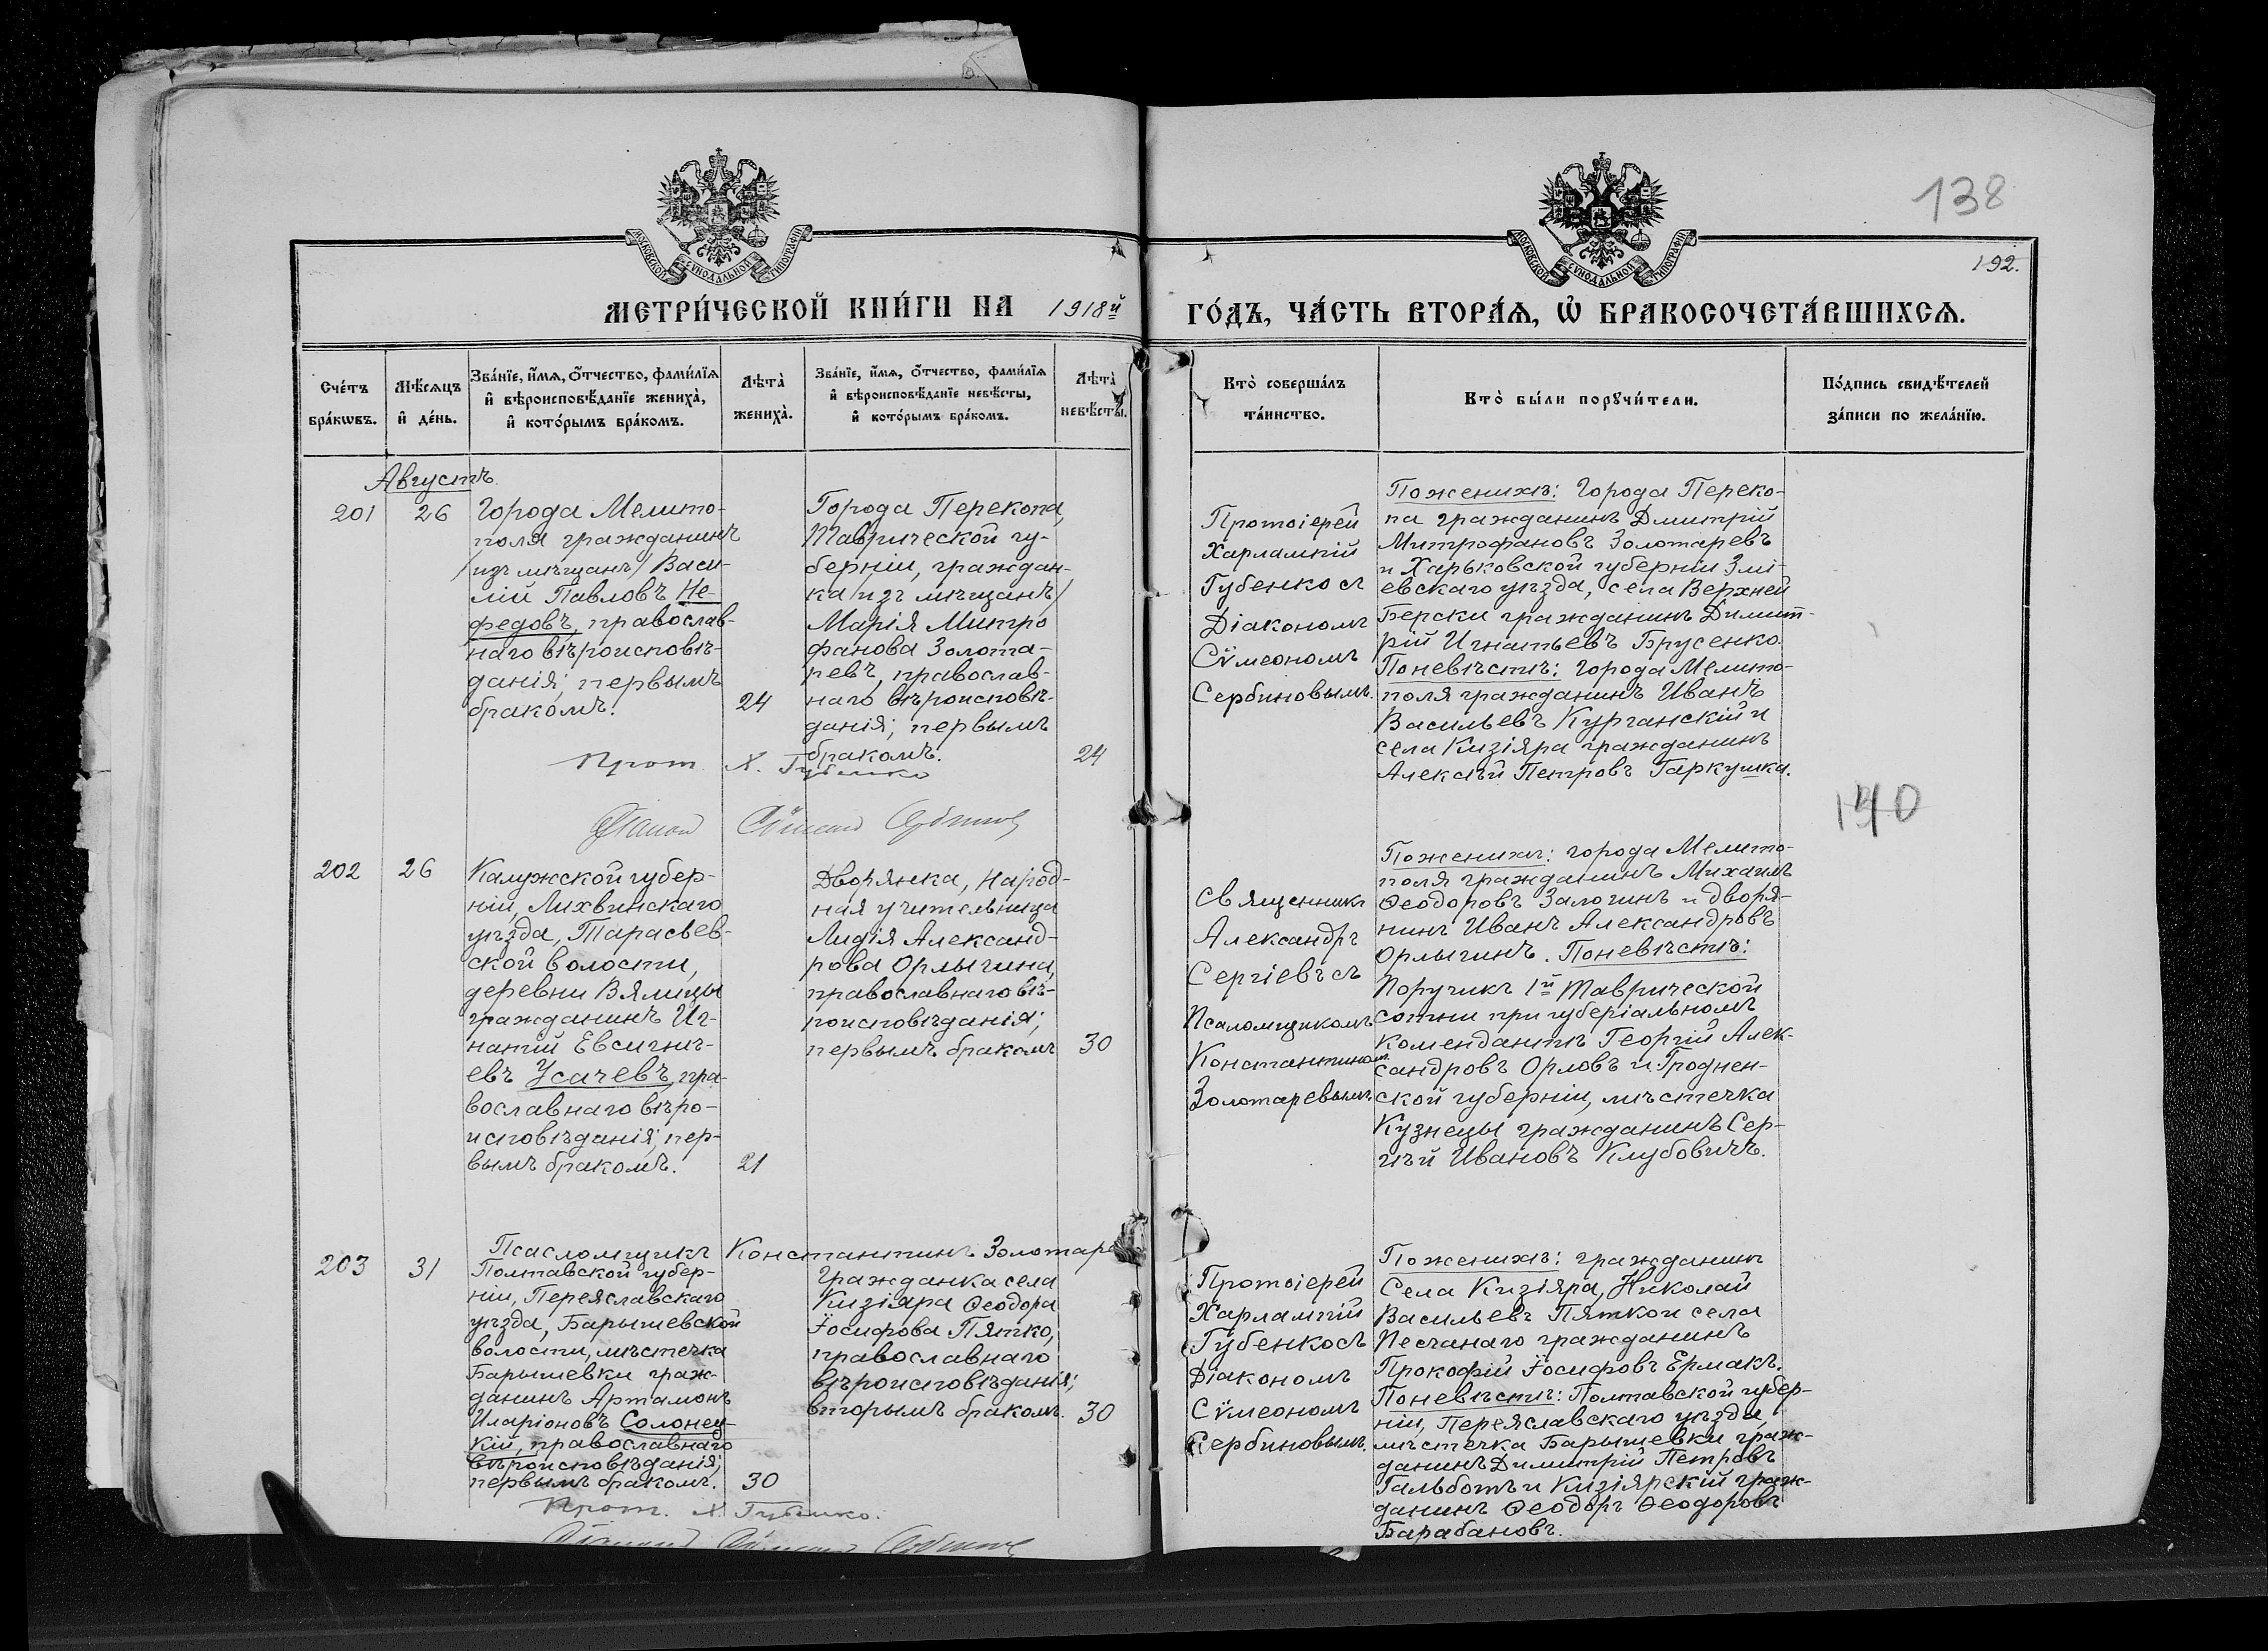 138
192.
МОСКОВСКОЙ СѴНОДАЛЬНОЙ ТИПОГРАФІИ
МОСКОВСКОЙ СѴНОДАЛЬНОЙ ТИПОГРАФІИ
МЕТРИ́ЧЕСКОЙ КНИ́ГИ НА 1918й ГО́ДЪ, ЧА́СТЬ ВТОРА́Ѧ, Ѽ БРАКОСОЧЕТА́ВШИХСѦ.
Сче́тъ
бра́кѡвъ.
Мѣ́сѧцъ
и҆ де́нь.
Зва́нїе, и҆́мѧ, ѻ҆́тчество, фами́лїѧ
и҆ вѣроисповѣ́данїе жениха̀,
и҆ кото́рымъ бра́комъ.
Лѣта̀
жениха̀.
Зва́нїе, и҆́мѧ, ѻ҆́тчество, фами́лїѧ
и҆ вѣроисповѣ́данїе невѣ́сты,
и҆ кото́рымъ бра́комъ.
Лѣта̀
невѣ́сты.
Кто̀ соверша́лъ
та́инство.
Кто̀ бы́ли порꙋчи́тели.
По́дпись свидѣ́телей
за́писи по жела́нїю.
Августъ.
201
26
Города Мелито-
поля гражданинъ
/изъ мѣщанъ/ Васи-
лій Павловъ Не-
федовъ, православ-
наго вѣроисповѣ-
данія; первымъ
бракомъ.
24
Города Перекопа,
Таврической гу-
берніи, граждан-
ка /изъ мѣщанъ/
Марія Митро
фанова Золота-
ревъ, православ-
наго вѣроисповѣ-
данія; первымъ
бракомъ.
24
Протоіерей
Харлампій
Губенко съ
Діакономъ
Сѵмеономъ
Сербиновымъ.
По женихѣ: Города Переко-
па гражданинъ Дмитрій
Митрофановъ Золотаревъ
и Харьковской губерніи Змі-
евскаго уѣзда, села Верхней
Берски гражданинъ Димит-
рій Игнатьевъ Брусенко.
По невѣстѣ: города Мелито-
поля гражданинъ Иванъ
Васильевъ Курганскій и
села Кизіяра гражданинъ
Алексѣй Петровъ Гаркушка.
Прот. Х. Губенко
Сѵмеонъ
140
202
26
Калужской губер-
ніи, Лихвинскаго
уѣзда, Тарасьев-
ской волости,
деревни Вялицы
гражданинъ Иг-
натій Евсигні-
евъ Усачевъ, пра-
вославнаго вѣро-
исповѣданія; пер-
вымъ бракомъ.
21
Дворянка, народ-
ная учительница
Лидія Александ-
рова Орлыгина,
православнаго вѣ-
роисповѣданія;
первымъ бракомъ
30
Священникъ
Александръ
Сергіевъ съ
Псаломщикомъ
Константином
Золотаревымъ.
По женихѣ: города Мелито-
поля гражданинъ Михаилъ
Ѳеодоровъ Залогинъ и дворя-
нинъ Иванъ Александровъ
Орлыгинъ. По невѣстѣ:
Поручикъ 1й Таврической
сотни при губеріальномъ
комендантѣ Георгій Алек-
сандровъ Орловъ и Гроднен-
ской губерніи, мѣстечка
Кузнецы гражданинъ Сер-
гѣй Ивановъ Клубовичъ.
Псасломщикъ Константинъ Золотаре
203
31
Полтавской губер-
ніи, Переяславскаго
уѣзда, Барышевской
волости, мѣстечка
Барышевки граж-
данинъ Артамонъ
Иларіоновъ Солонец-
кій, православнаго
вѣроисповѣданія;
первымъ бракомъ.
30
Гражданка села
Кизіяра Ѳеодора
Іосифова Пятко,
православнаго
вѣроисповѣданія;
вторымъ бракомъ.
30
Протоіерей
Харлампій
Губенко съ
Діакономъ
Сѵмеономъ
Сербиновымъ.
По женихѣ: гражданинъ
Села Кизіяра, Николай
Васильевъ Пятко и села
Песчанаго гражданинъ
Прокофій Іосифовъ Ермакъ.
По невѣстѣ: Полтавской губер-
ніи, Переяславскаго уѣзда,
мѣстечка Барышевки граж-
данинъ Димитрій Петровъ
Гальботъ и Кизіярскій граж-
данинъ Ѳеодоръ Ѳеодоровъ
Барабановъ.
Прот. Х. Губенко.